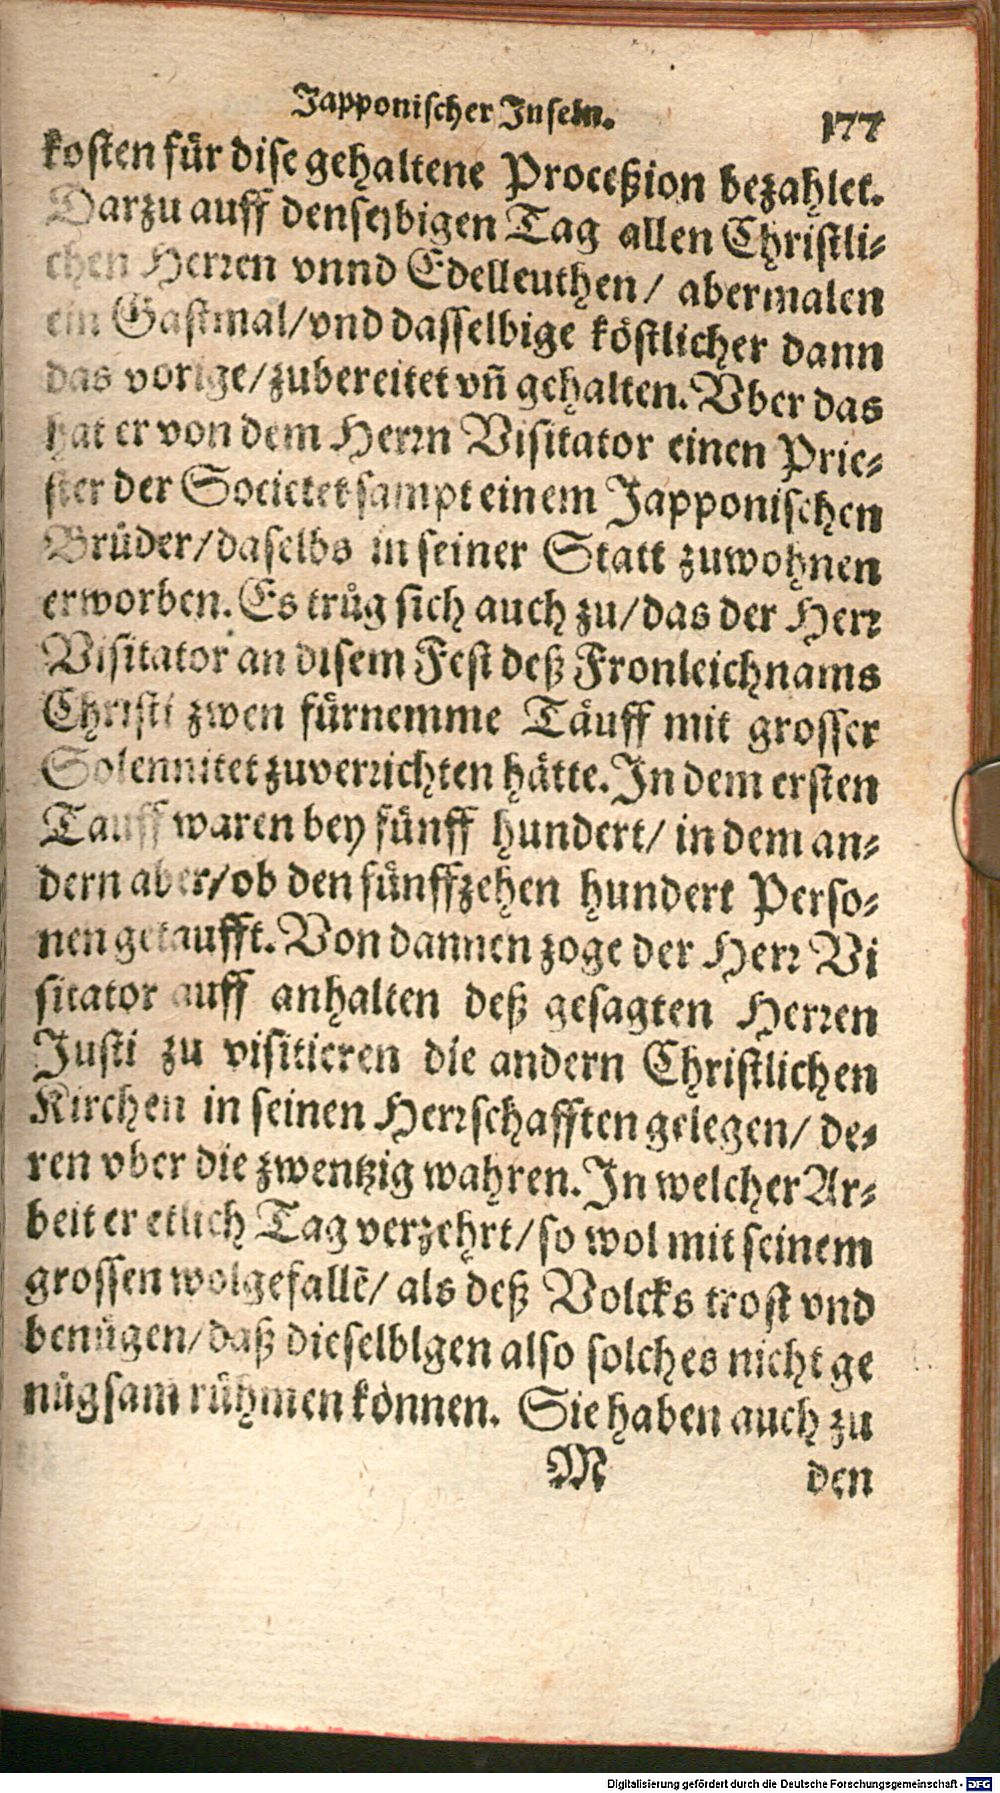 Japponischer Inseln. 177
kosten für dise gehaltene Proceßion bezahlet.
Darzu auff denselbigen Tag allen Christli-
chen Herren vnnd Edelleuthen/ abermalen
ein Gastmal/vnd dasselbige köstlicher dann
das vorige/zubereitet vñ gehalten. Vber das
hat er von dem Herrn Visitator einen Prie-
ster der Societet sampt einem Japponischen
Brüder/daselbs in seiner Statt zuwohnen
erworben. Es trůg sich auch zu/das der Herr
Visitator an disem Fest deß Fronleichnams
Christi zwen fürnemme Täuff mit grosser
Solennitet zuverrichten hätte. In dem ersten
Tauff waren bey fünff hundert/ in dem an-
dern aber/ob den fünffzehen hundert Perso-
nen getaufft. Von dannen zoge der Herr Vi
sitator auff anhalten deß gesagten Herren
Justi zu visitieren die andern Christlichen
Kirchen in seinen Herrschafften gelegen/ de-
ren vber die zwentzig wahren. In welcher Ar-
beit er etlich Tag verzehrt/so wol mit seinem
grossen wolgefallẽ/ als deß Volcks trost vnd
benügen/daß dieselbigen also solches nicht ge
nůgsam rühmen können. Sie haben auch zu
M den
Digitalisierung gefördert durch die Deutsche Forschungsgemeinschaft - DFG